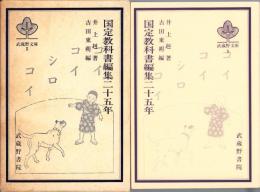 武蔵野文庫
国定教科書編集二十五年
井上 赳 著
古田東朔 編
コイ
コイ
シロ
コイ
武蔵野書院
武蔵野文庫
国定教科書編集二十五年
井上 赳 著
古田東朔 編
コイ
コイ
シロ
コイ
武蔵野書院